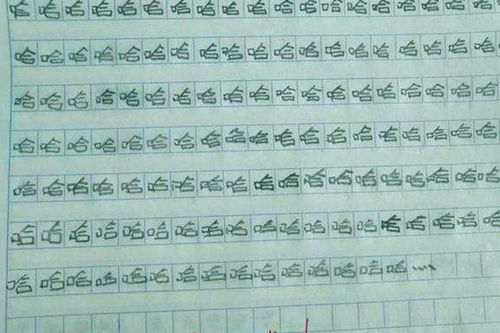 哈哈哈哈哈哈哈哈哈哈哈哈哈哈哈哈哈哈哈
哈哈哈哈哈哈哈哈哈哈哈哈哈哈哈哈哈哈哈
哈哈哈哈哈哈哈哈哈哈哈哈哈哈哈哈哈哈哈
哈哈哈哈哈哈哈哈哈哈哈哈哈哈哈哈哈哈哈
哈哈哈哈哈哈哈哈哈哈哈哈哈哈哈哈哈哈哈
哈哈哈哈哈哈哈哈哈哈哈哈哈哈哈哈哈哈哈
哈哈哈哈哈哈哈哈哈哈哈哈哈哈哈……